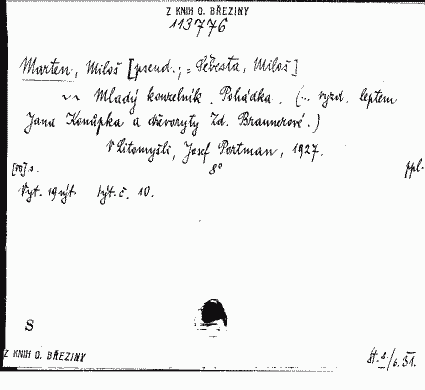 Z KNIH O. BŘEZINY
113776
Marten, Miloš [pseud.; = Šebesta, Miloš]
Mladý kouzelník. Pohádka. (... vyzd. leptem
Jana Konůpka a dřevoryty Zd. Braunerové.)
V Litomyšli, Josef Portman, 1927.
s. 8° ppl.
Výt. 19 výt. Výt. č. 10.
S
Z KNIH O. BŘEZINY